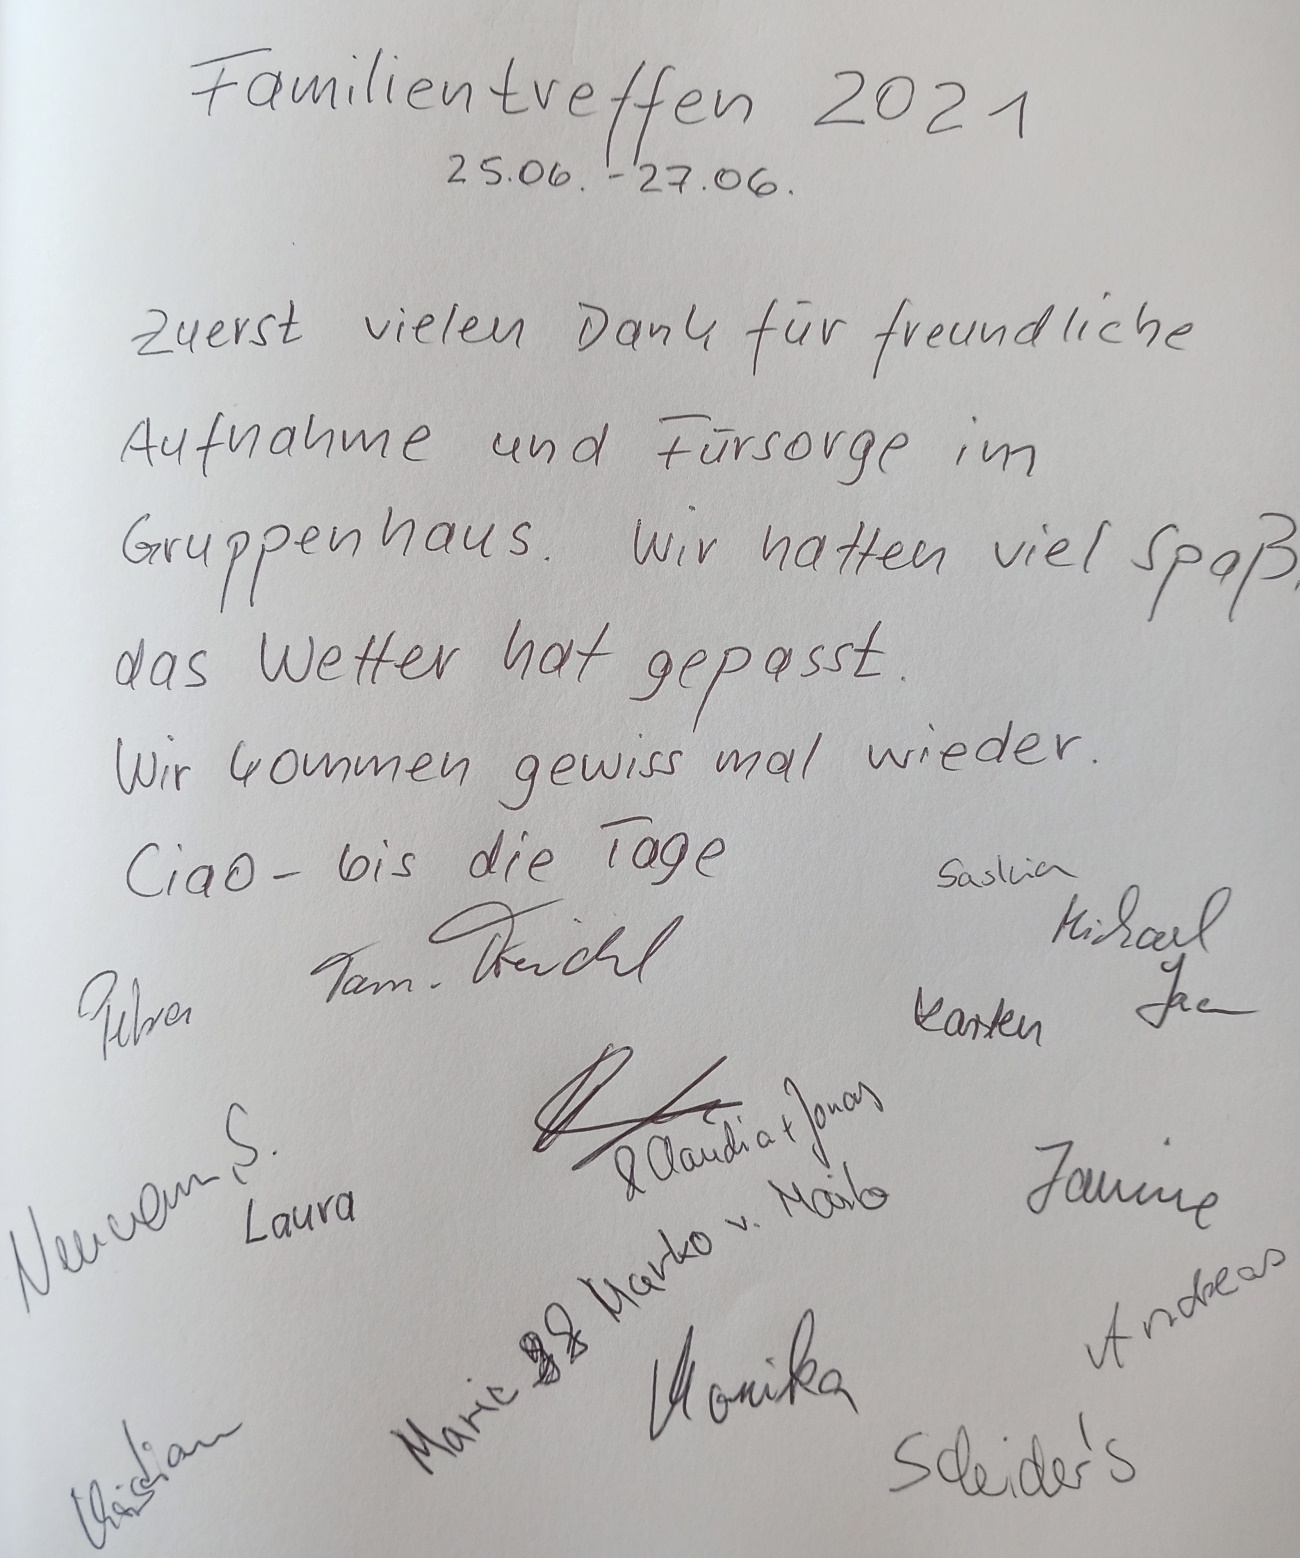 Familientreffen 2021
25.06. - 27.06.
Zuerst vielen Dank für freundliche
Aufnahme und Fürsorge im
Gruppenhaus. Wir hatten viel Spaß,
das Wetter hat gepasst.
Wir kommen gewiss mal wieder.
Ciao - bis die Tage
Saskia
Michael
Petra
Fam.
Karsten
Jan
& Claudia + Jonas
Neumann, S.
Laura
Janine
Marie & Marko v.
Andreas
Monika
Christian